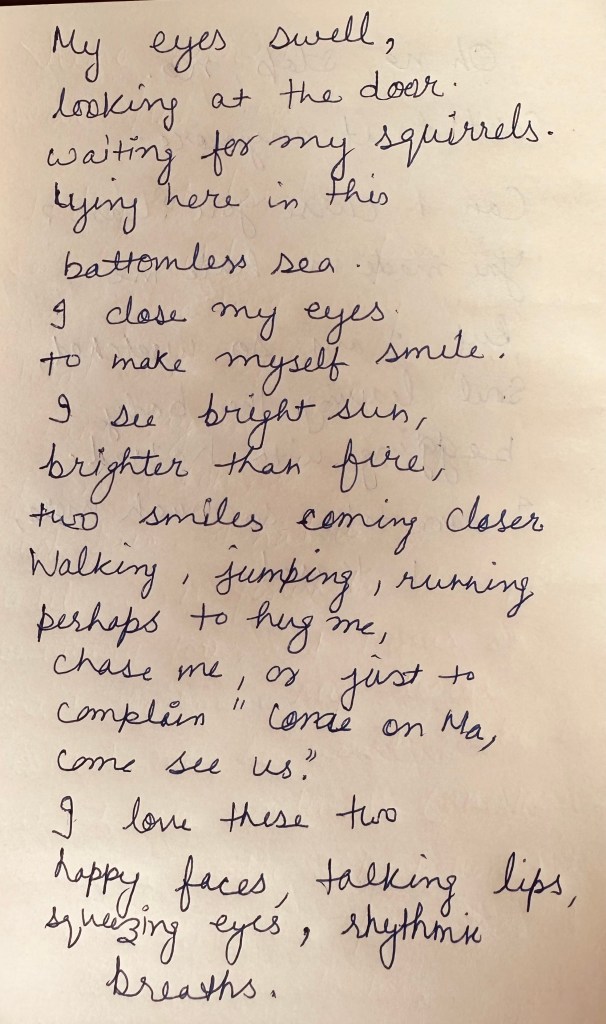 My eyes swell,
looking at the door.
waiting for my squirrels.
Lying here in this
bottomless sea.
I close my eyes.
to make myself smile.
I see bright sun,
brighter than fire,
two smiles coming closer
Walking, jumping, running
perhaps to hug me,
chase me, or just to
complain "Come on Ma,
come see us."
I love these two
happy faces, talking lips,
squeezing eyes, rhythmic
breaths.